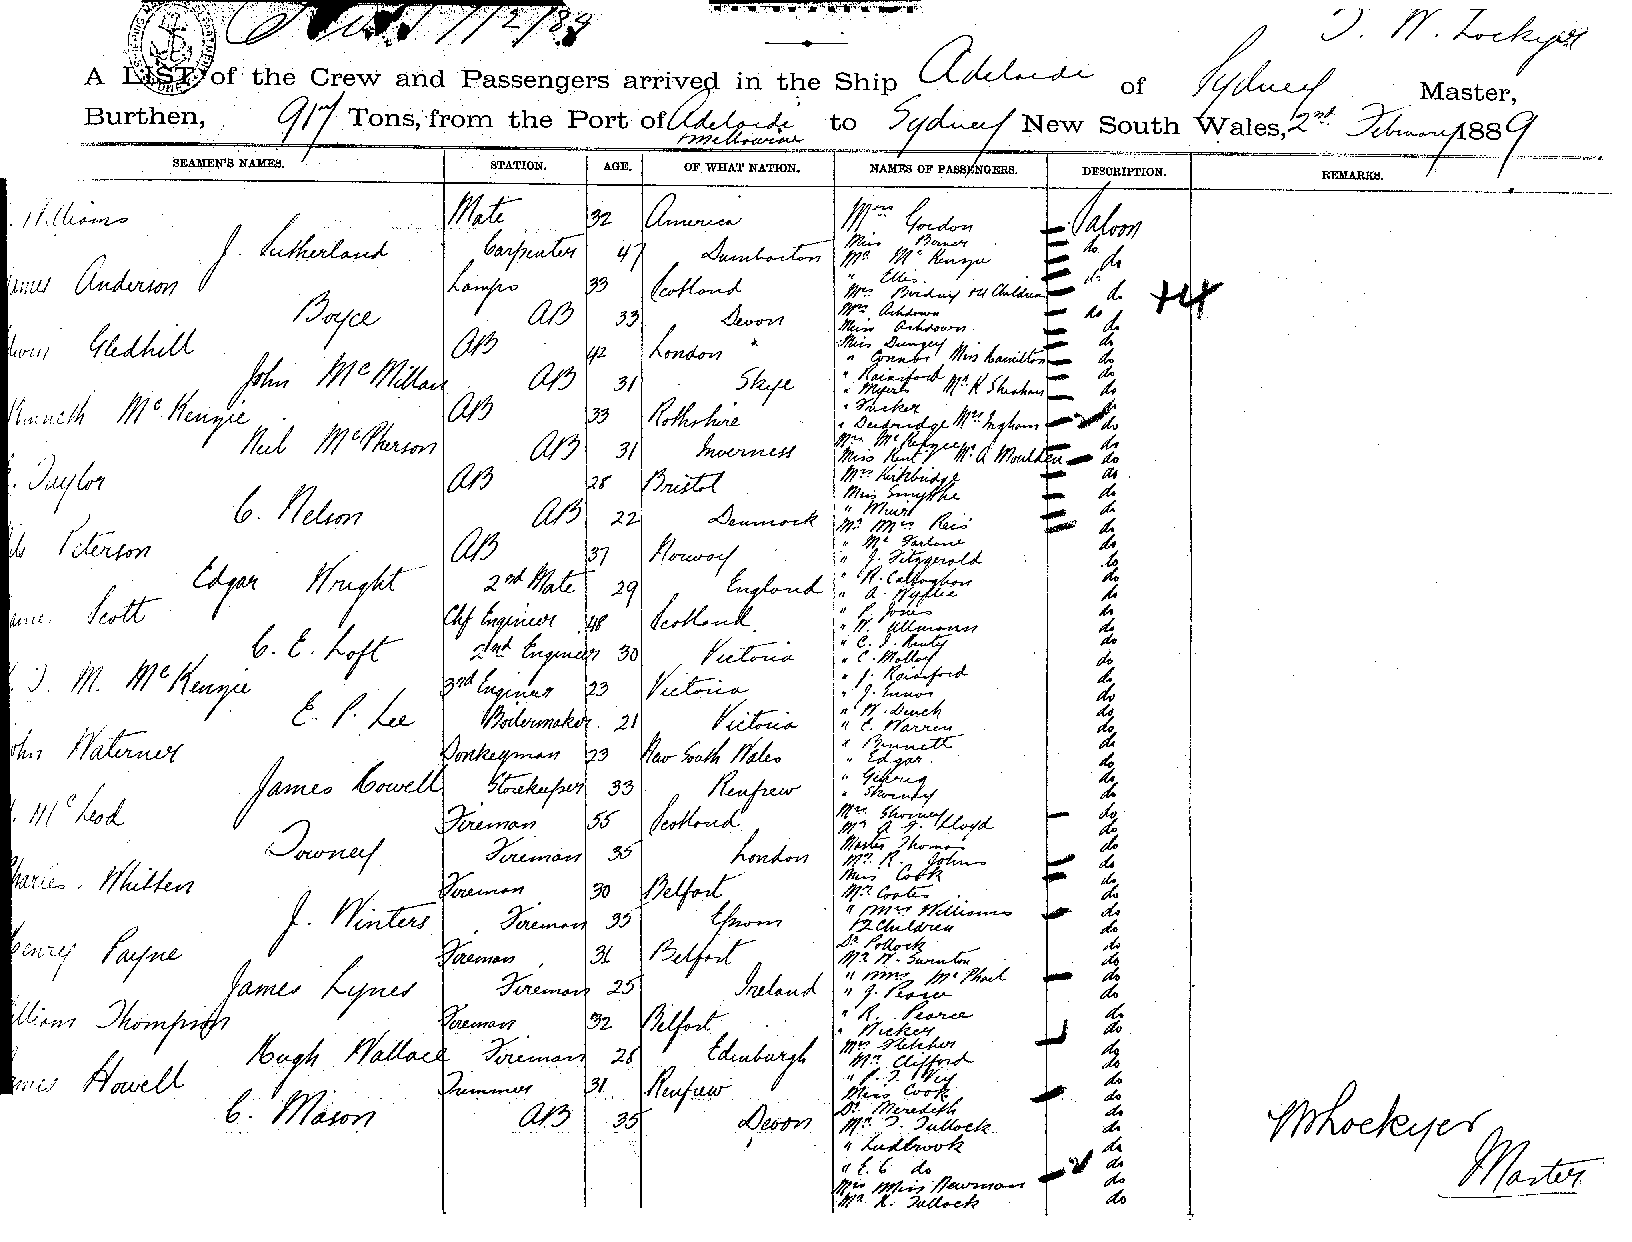 7/2/89
T. W. Lockyer
A LIST of the Crew and Passengers arrived in the Ship Adelaide of Sydney Master,
Burthen, 917 Tons, from the Port of Adelaide to Sydney New South Wales, 2nd February 1889
Melbourne
SEAMEN'S NAMES. STATION. AGE. OF WHAT NATION. NAMES OF PASSENGERS. DESCRIPTION. REMARKS.
Williams Mate 32 America Mrs Gordon Saloon
J. Sutherland Carpenter 47 Dumbarton Miss do
Mr McKenzie do
ames Anderson Lamps 33 Scotland " Ellis do
Mrs Birdsey & 4 Children do +4
Boyce AB 33 Devon Mrs Ashdown do
Miss Ashdown do
Gledhill AB 42 London Miss Dungey do
" Connor Miss Hamilton do
John McMillan AB 31 Skye " Rainsford do
" Myers Mr K Sheahan do
Kenneth McKenzie AB 33 Rothshire " Tucker do
" Deebridge Mrs Ingham do
Neil McPherson AB 31 Inverness Mrs McKenzie do
Miss Kent Mr A Moulden do
Taylor AB 28 Bristol Mrs Kirkbridge do
Miss Smythe do
C. Nelson AB 22 Denmark " Muir do
Mr Mrs Reis do
ls Peterson AB 37 Norway " McFarlane do
" J. Fitzgerald do
Edgar Wright 2nd Mate 29 England " R. Callaghan do
" A. Wyllie do
ame. Scott Chf Engineer 48 Scotland " P. Jones do
" W. Ullmann do
C. E. Loft 2nd Engineer 30 Victoria " C. J. do
" C. Malloy do
J. M. McKenzie 3rd Engineer 23 Victoria " J. Rainsford do
" J. Ennor do
E. P. Lee Boilermaker 21 Victoria " W. Dench do
" E. Warren do
ohn Waterner Donkeyman 23 New South Wales " Bennett do
" Edgar do
James Cowell Storekeeper 33 Renfrew " Gehrig do
" do
McLeod Fireman 55 Scotland Mrs do
Mr A. J. Lloyd do
Downey Fireman 35 London Master Thomas do
Mr R. Johns do
harles. Whitten Fireman 30 Belfast Miss Cook do
Mr Coates do
J. Winters Fireman 35 " Mrs Williams do
& 2 Children do
Henry Payne Fireman 31 Belfast Dr Pollock do
Mr W. Swinton do
James Lynes Fireman 25 Ireland " Mrs McPhail do
" J. Pearce do
illiam Thompson Fireman 32 Belfast " R. Pearce do
" Wicker do
Hugh Wallace Fireman 28 Edinburgh Mrs Fletcher do
Mr Clifford do
ames Howell Trimmer 31 Renfrew " P. J. do
Miss Cook do
C. Mason AB 35 Devon Dr Meredith do
Mr T. Tullock do
" Ludbrook do
" E. C do do
Mrs Miss Newman do
Mr K. Tullock do
W Lockyer
Master